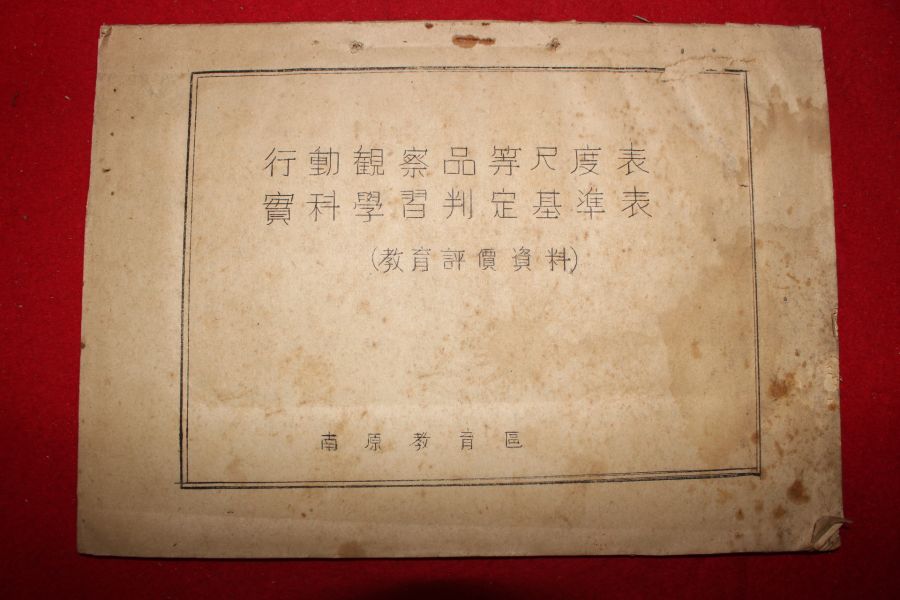 行動観察品等尺度表
實科學習判定基準表
(教育評價資料)
南原教育區